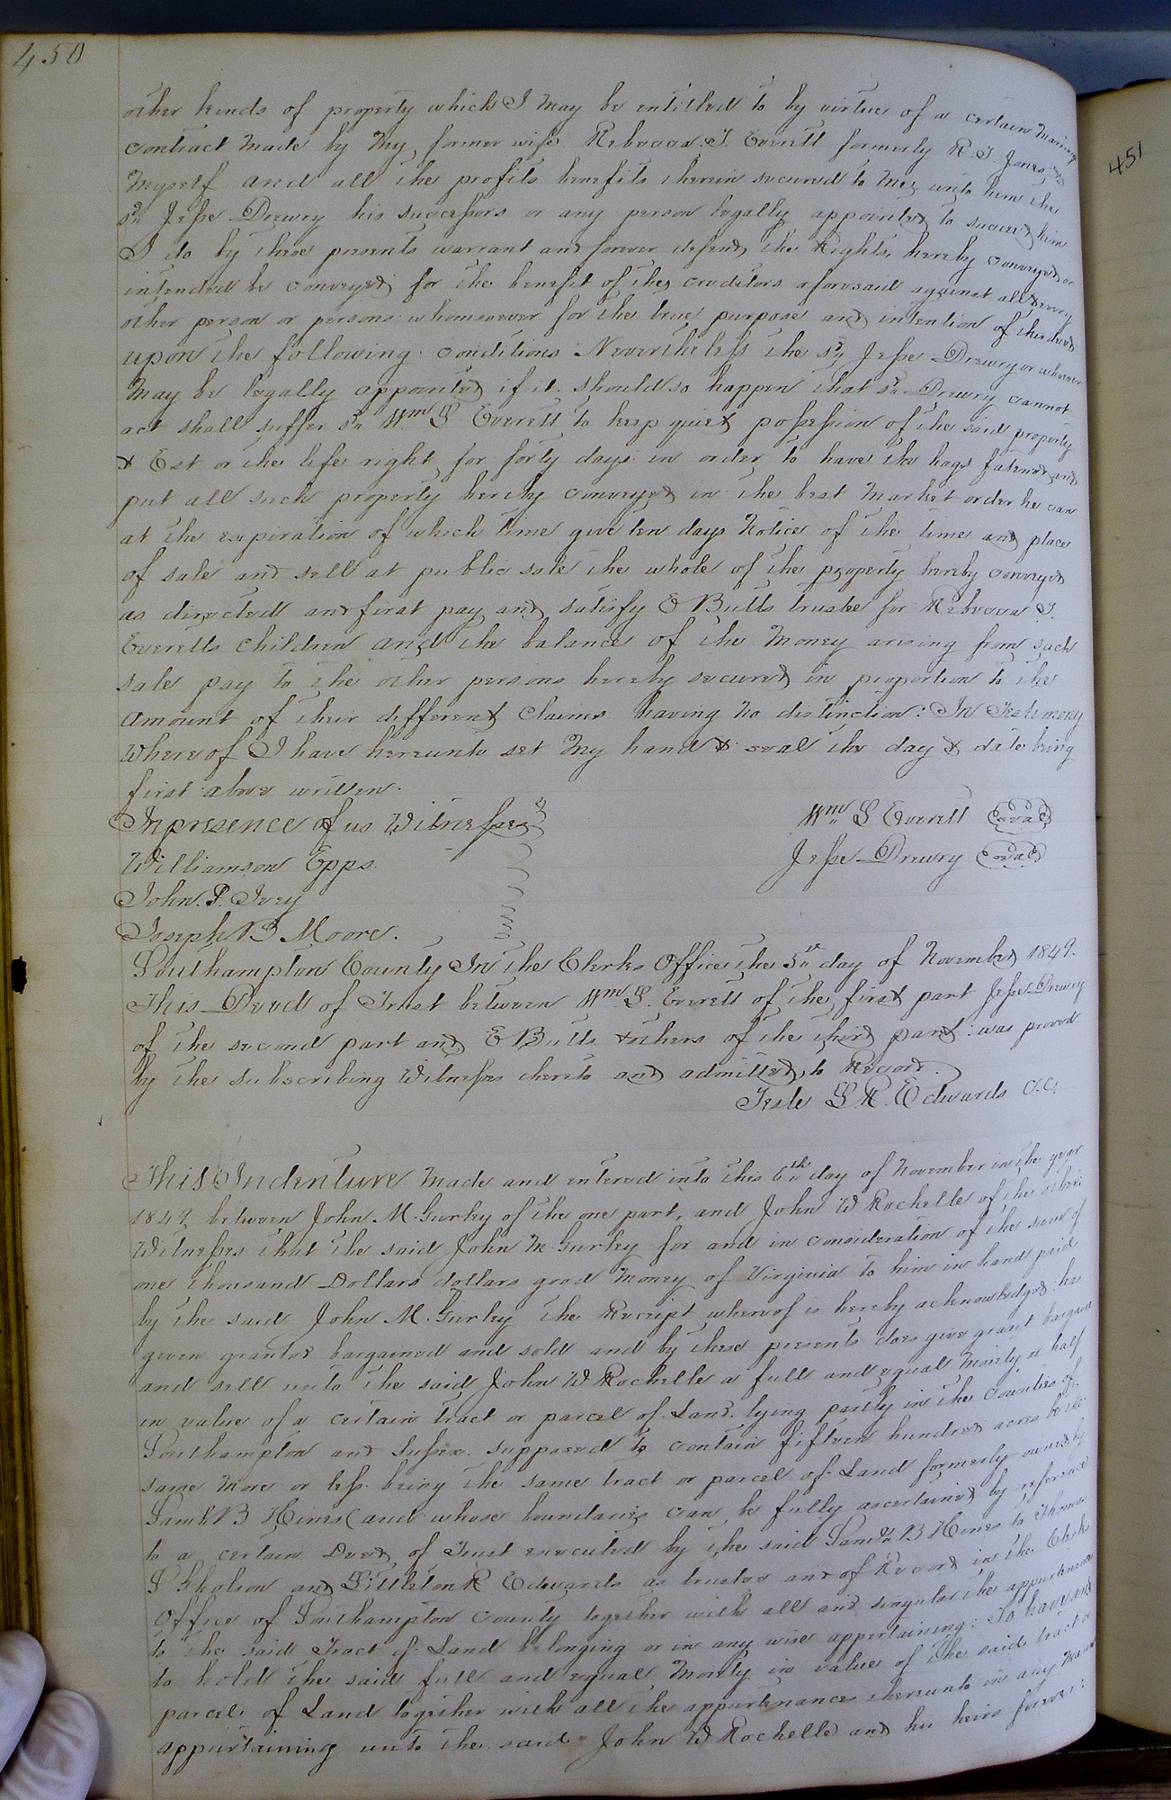 450
451
other kinds of property which I may be entitled to by virtue of a certain marriage
contract made by my former wife Rebecca T. Everett formerly R. T. Jones, and
Myself and all the profits benefits therein secured to me, unto him the
sd. Jesse Drewry his successors or any person legally appointed to succeed him
I do by these presents warrant and forever defend the Rights, hereby conveyed or
intended be conveyed for the benefit of the creditors aforesaid against all & every
other person or persons whomsoever for the true purpose and intention of this deed
upon the following conditions Nevertheless the sd. Jesse Drewry or whoever
may be legally appointed if it should so happen that sd. Drewry cannot
act shall suffer sd. Wm S Everett to keep quiet possession of the said property
& Est or the life right for forty days in order to have the hogs fatened and
put all such property hereby conveyed in the best market order he can
at the expiration of which time give ten days Notice of the time and place
of sale and sell at public sale the whole of the property hereby conveyed
as directed and first pay and satisfy E Butts trustee for Rebecca T.
Everetts children and the balance of the money arising from such
sale pay to the other persons hereby secured in proportion to the
amount of their different claims having no distinction: In Testimony
Whereof I have hereunto set my hand & seal the day & date being
first above written.
In presence of us Witnesses
Wm S Everett Seal
Williamson Epps.
Jesse Drewry Seal
John. P. Ivey
Joseph B Moore.
Southampton County In the Clerks Office the 5th day of November 1849.
This Deed of Trust between Wm S. Everett of the first part Jesse Drewry
of the second part and E Butts & others of the third part: was proved
by the subscribing Witnesses thereto and admitted to Record.
Teste L. R. Edwards C.C.
This Indenture made and entered into this 6th day of November in the year
1849, between John M. Gurley of the one part, and John W Rochelle of the other:
Witnesses that the said John M Gurley for and in consideration of the sum of
one thousand Dollars dollars good money of Virginia to him in hand paid
by the said John M. Gurley the Receipt whereof is hereby acknowledged has
given granted bargained and sold and by these presents does give grant bargain
and sell unto the said John W Rochelle a full and equal moiety or half
in value of a certain tract or parcel of Land lying partly in the Counties of
Southampton and Sussex supposed to contain fifteen hundred acres be the
same more or less being the same tract or parcel of Land formerly owned by
Saml B Hines (and whose boundaries can be fully ascertained by reference
to a certain Deed of Trust executed by the said Saml B Hines to Thomas
S Gholson and Littleton R Edwards as trustee and of Record in the Clerks
Office of Southampton County together with all and singular the appurtenances
to the said Tract of Land belonging or in any wise appertaining: To have and
to hold the said full and equal moiety in value of the said tract or
parcel of Land together with all the appurtenances thereunto in any way
appurtaining unto the said John W Rochelle and his heirs forever: